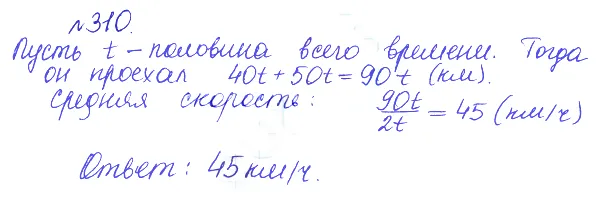 №310.
Пусть t - половина всего времени. Тогда
он проехал 40t + 50t = 90t (км).
Средняя скорость: 90t/2t = 45 (км/ч)
Ответ: 45 км/ч.